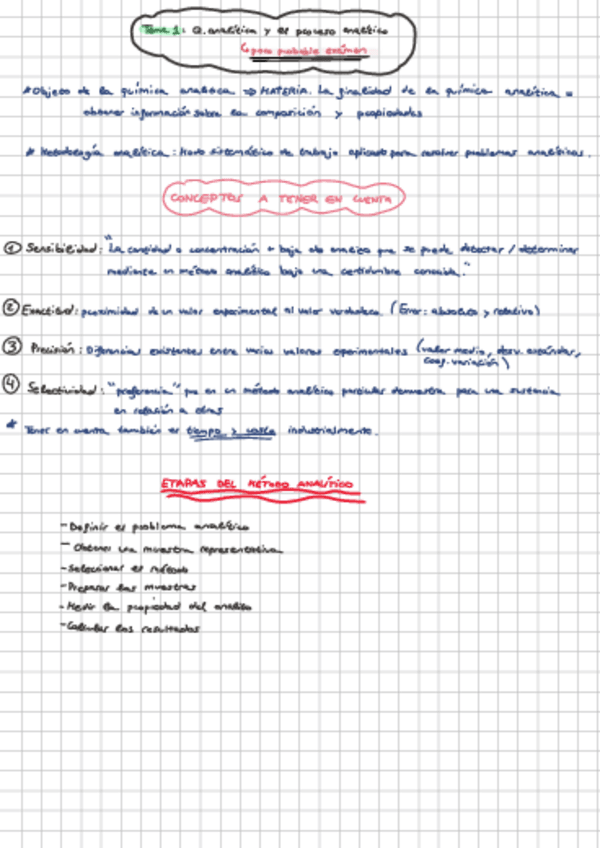 Tema 1: Q. analítica y el proceso analítico
↳ poco probable exámen
*Objeto de la química analítica ⇒ MATERIA. La finalidad de la química analítica
obtener información sobre la composición y propiedades
* Metodología analítica: Modo sistemático de trabajo aplicado para resolver problemas analíticos.
CONCEPTOS A TENER EN CUENTA
① Sensibilidad: "La cantidad o concentración + baja de analito que se puede detectar / determinar
mediante un método analítico bajo una certidumbre conocida."
② Exactitud: proximidad de un valor experimental al valor verdadero. (Error: absoluto y relativo)
③ Precisión: Diferencias existentes entre varios valores experimentales (valor medio, desv. estándar,
coef. variación)
④ Selectividad: "preferencia" que en un método analítico particular demuestra para una sustancia
en relación a otras
* Tener en cuenta también el tiempo y coste industrialmente.
ETAPAS DEL MÉTODO ANALÍTICO
- Definir el problema analítico
- Obtener una muestra representativa
- Seleccionar el método
- Preparar las muestras
- Medir la propiedad del analito
- Calcular los resultados